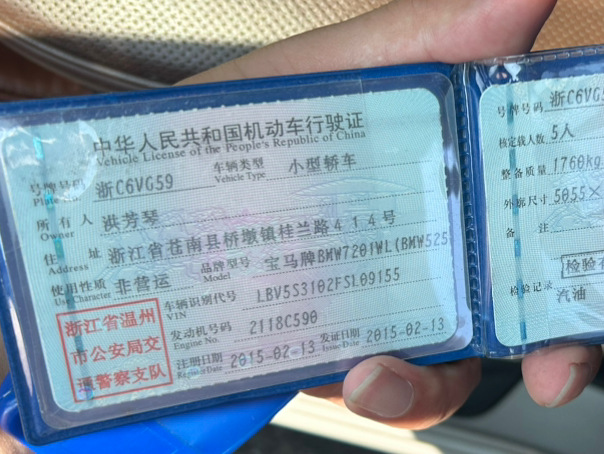 中华人民共和国机动车行驶证
Vehicle License of the People's Republic of China
号牌号码 浙C6VG59 车辆类型 小型轿车
Plate Vehicle Type
所有人 洪芳琴
Owner
住址 浙江省苍南县桥墩镇桂兰路414号
Address
使用性质 非营运 品牌型号 宝马牌BMW7201WL(BMW525
Use Character Model
浙江省温州
市公安局交
通警察支队
车辆识别代号 LBV5S3102FSL09155
VIN
发动机号码 2118C590
Engine No.
注册日期 2015-02-13 发证日期 2015-02-13
Register Date Issue Date
号牌号码 浙C6VG5
核定载人数 5人
整备质量 1760kg
外廓尺寸 5055×
备注
检验记录 检验有
汽油